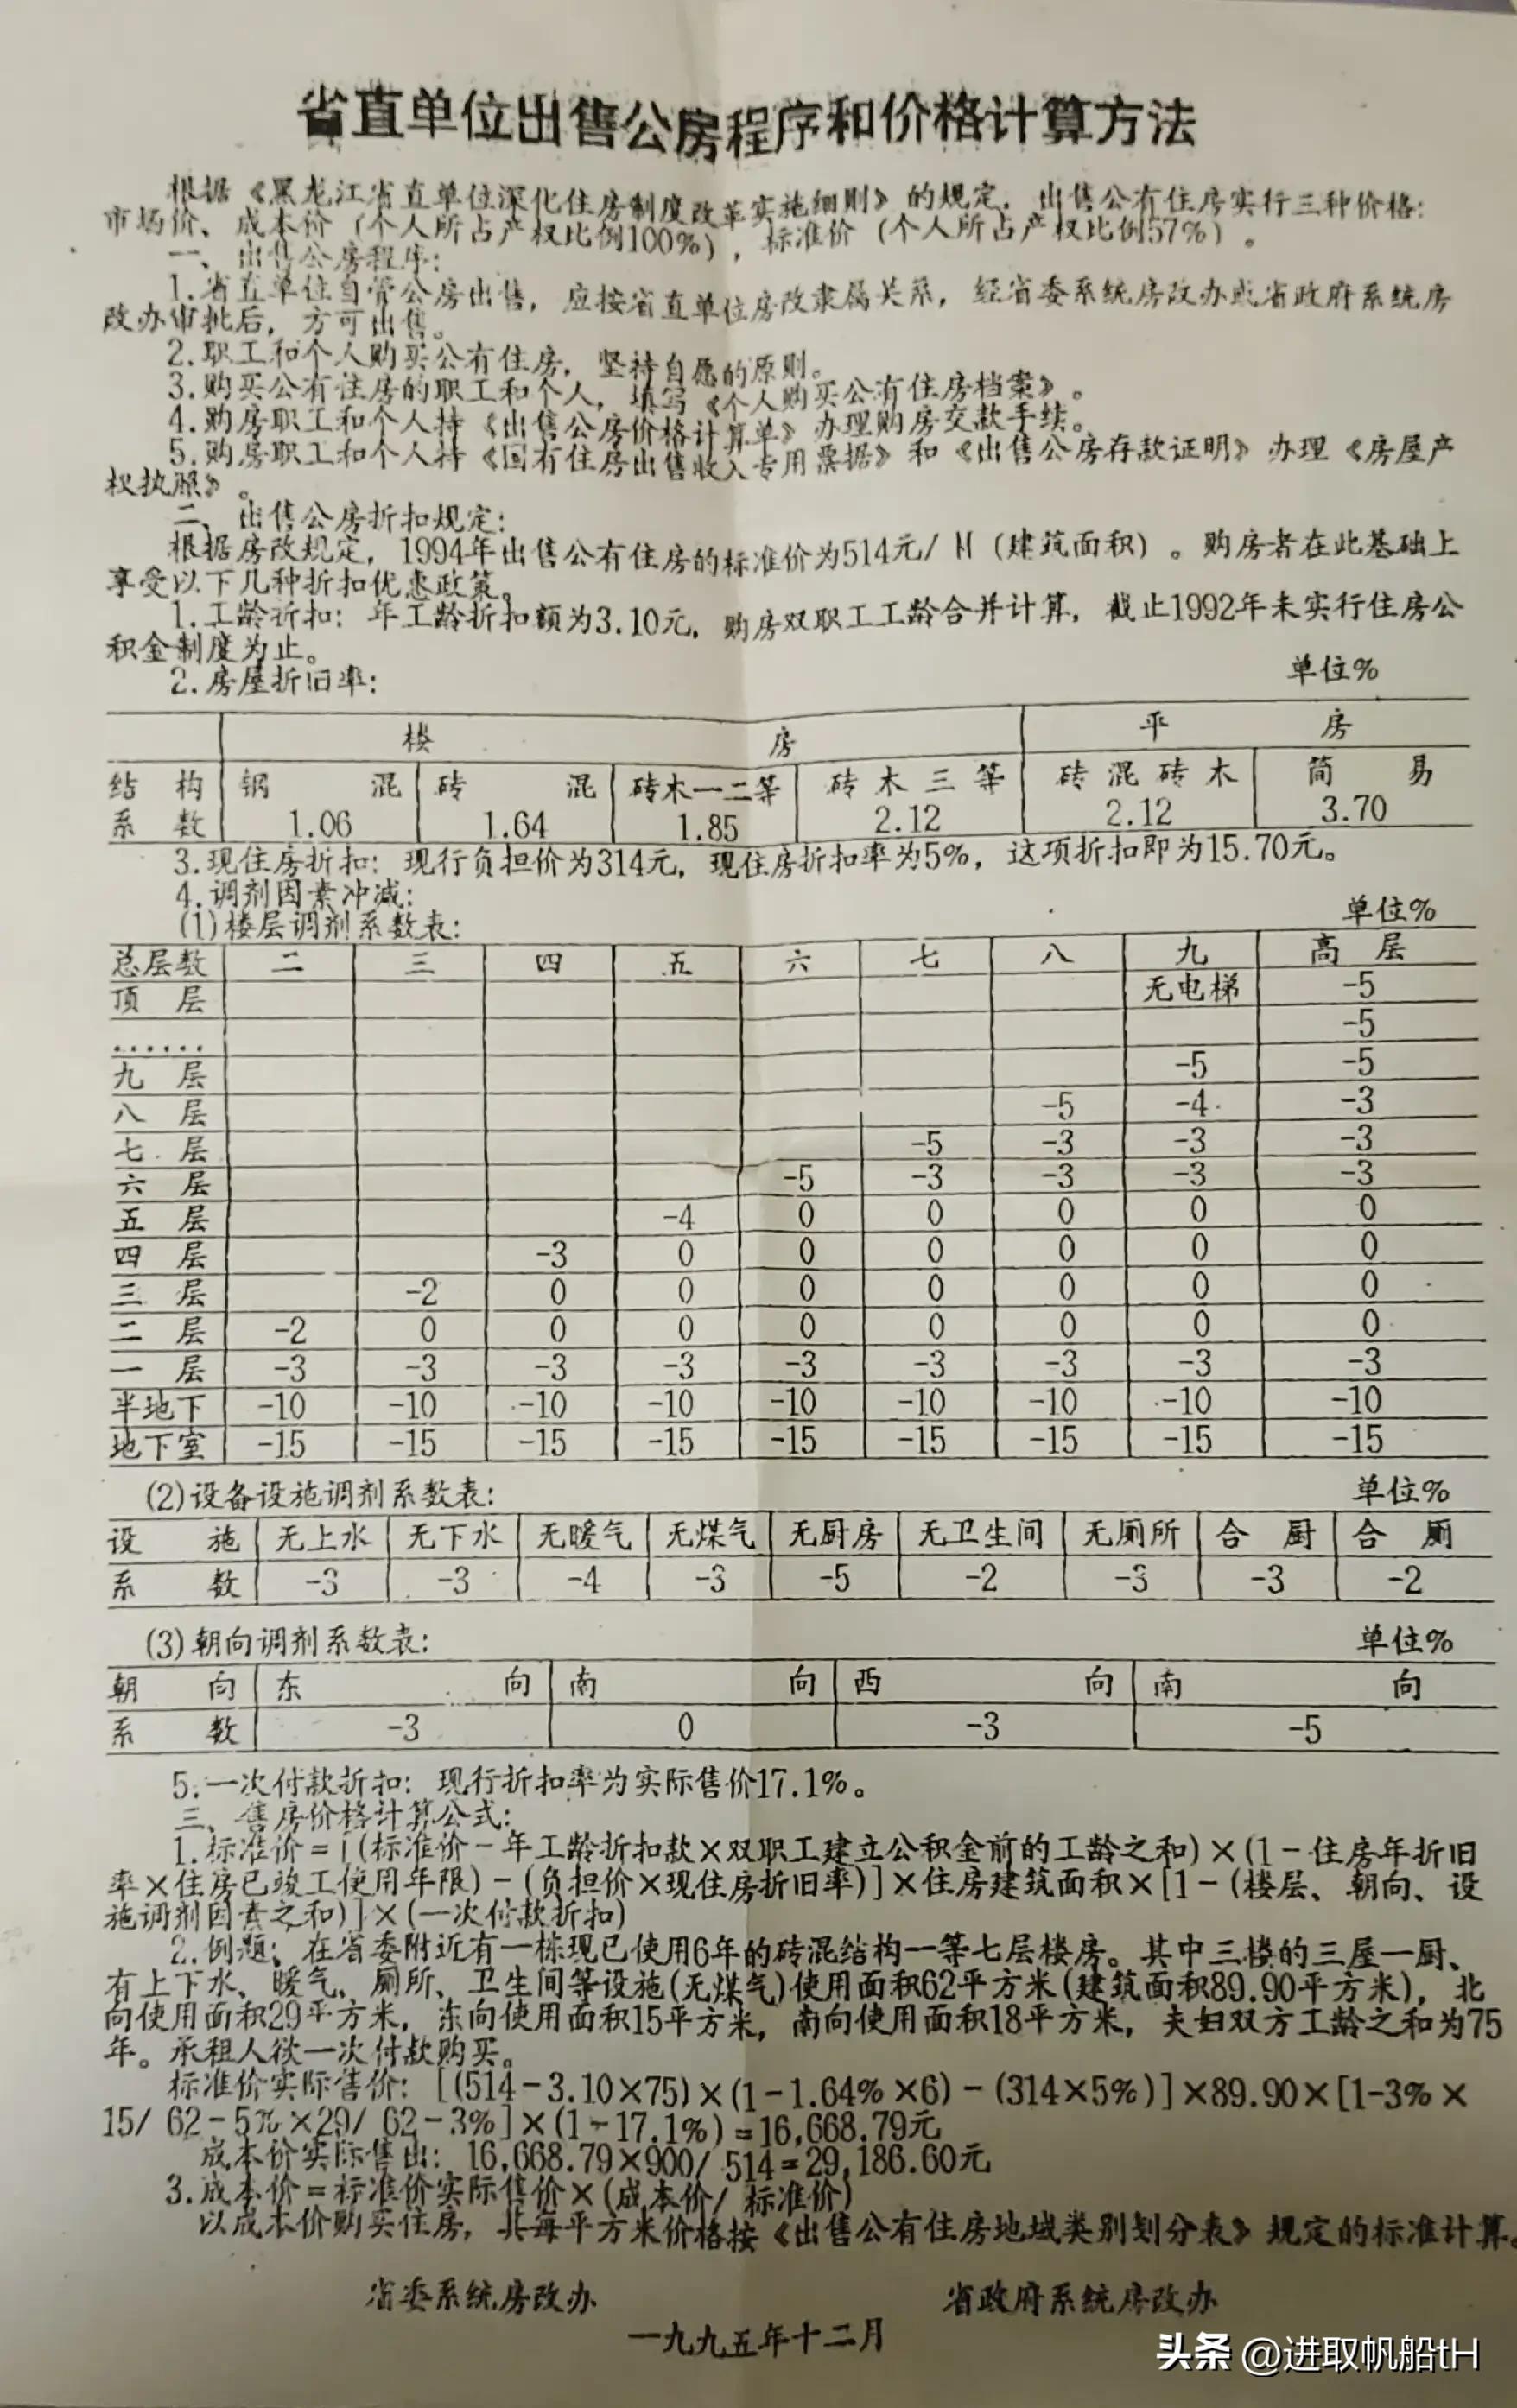 省直单位出售公房程序和价格计算方法
根据《黑龙江省直单位深化住房制度改革实施细则》的规定，出售公有住房实行三种价格：
市场价、成本价（个人所占产权比例100%），标准价（个人所占产权比例57%）。
一、出售公房程序：
1.省直单位自管公房出售，应按省直单位房改隶属关系，经省委系统房改办或省政府系统房
改办审批后，方可出售。
2.职工和个人购买公有住房，坚持自愿的原则。
3.购买公有住房的职工和个人，填写《个人购买公有住房档案》。
4.购房职工和个人持《出售公房价格计算单》办理购房交款手续。
5.购房职工和个人持《国有住房出售收入专用票据》和《出售公房存款证明》办理《房屋产
权执照》。
二、出售公房折扣规定：
根据房改规定，1994年出售公有住房的标准价为514元/M（建筑面积）。购房者在此基础上
享受以下几种折扣优惠政策。
1.工龄折扣：年工龄折扣额为3.10元，购房双职工工龄合并计算，截止1992年未实行住房公
积金制度为止。
2.房屋折旧率： 单位%
楼 房 平 房
结构 钢混 砖混 砖木一二等 砖木三等 砖混砖木 简易
系数 1.06 1.64 1.85 2.12 2.12 3.70
3.现住房折扣：现行负担价为314元，现住房折扣率为5%，这项折扣即为15.70元。
4.调剂因素冲减：
(1)楼层调剂系数表： 单位%
总层数 二 三 四 五 六 七 八 九 高层
顶层 无电梯 -5
…… -5
九层 -5 -5
八层 -5 -4 -3
七层 -5 -3 -3 -3
六层 -5 -3 -3 -3 -3
五层 -4 0 0 0 0 0
四层 -3 0 0 0 0 0 0
三层 -2 0 0 0 0 0 0 0
二层 -2 0 0 0 0 0 0 0 0
一层 -3 -3 -3 -3 -3 -3 -3 -3 -3
半地下 -10 -10 -10 -10 -10 -10 -10 -10 -10
地下室 -15 -15 -15 -15 -15 -15 -15 -15 -15
(2)设备设施调剂系数表： 单位%
设施 无上水 无下水 无暖气 无煤气 无厨房 无卫生间 无厕所 合厨 合厕
系数 -3 -3 -4 -3 -5 -2 -3 -3 -2
(3)朝向调剂系数表： 单位%
朝向 东向 南向 西向 南向
系数 -3 0 -3 -5
5.一次付款折扣：现行折扣率为实际售价17.1%。
三、售房价格计算公式：
1.标准价=[(标准价-年工龄折扣款×双职工建立公积金前的工龄之和)×(1-住房年折旧
率×住房已竣工使用年限)-(负担价×现住房折旧率)]×住房建筑面积×[1-(楼层、朝向、设
施调剂因素之和)]×(一次付款折扣)
2.例题：在省委附近有一栋现已使用6年的砖混结构一等七层楼房。其中三楼的三屋一厨、
有上下水、暖气、厕所、卫生间等设施(无煤气)使用面积62平方米(建筑面积89.90平方米)，北
向使用面积29平方米，东向使用面积15平方米，南向使用面积18平方米，夫妇双方工龄之和为75
年。承租人欲一次付款购买。
标准价实际售价：[(514-3.10×75)×(1-1.64%×6)-(314×5%)]×89.90×[1-3%×
15/62-5%×29/62-3%]×(1-17.1%)=16,668.79元
成本价实际售出：16,668.79×900/514=29,186.60元
3.成本价=标准价实际售价×(成本价/标准价)
以成本价购买住房，其每平方米价格按《出售公有住房地域类别划分表》规定的标准计算。
省委系统房改办 省政府系统房改办
一九九五年十二月
头条 @进取帆船tH